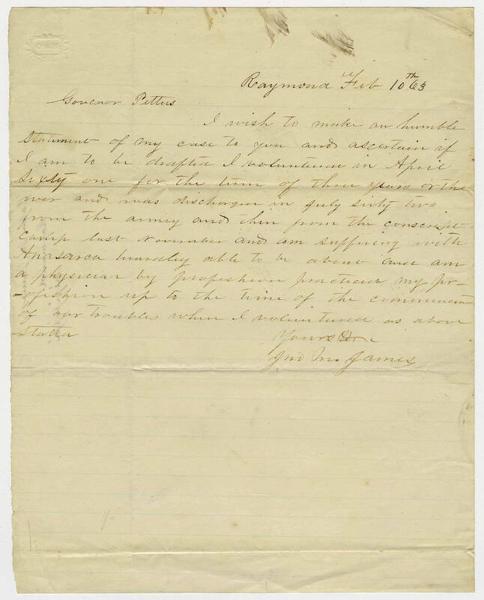 Raymond Feb 10th 63
Govenor Pettus
I wish to make an humble
Statement of my case to you and ascertain if
I am to be drafted I volunteered in April
Sixty one for the time of three years or the
war and was discharged in July sixty two
from the army and then from the conscript
Camp last November and am suffering with
Anasarca barely able to be about and am
a physician by profession practiced my pro-
fession up to the time of the commencement
of our troubles when I volunteered as above
Stated
Yours &c
Jno M James